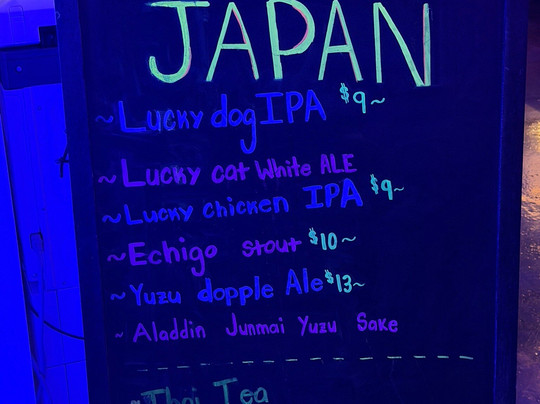 JAPAN
~Lucky dog IPA $9~
~Lucky cat White ALE
~Lucky chicken IPA $9~
~Echigo stout $10~
~Yuzu dopple Ale $13~
~Aladdin Junmai Yuzu Sake
~Thai Tea